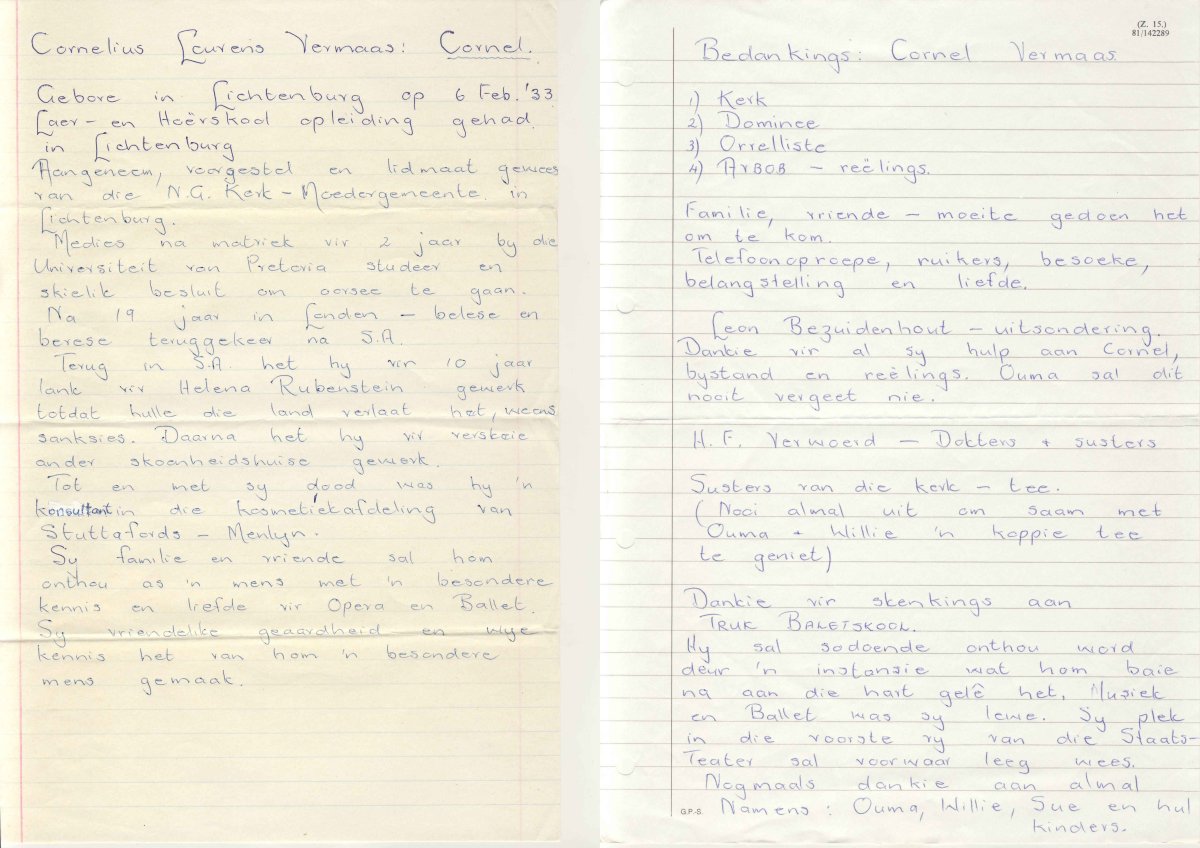 Cornelius Lourens Vermaas: Cornel.
Gebore in Lichtenburg op 6 Feb. '33.
Laer- en Hoërskool opleiding gehad
in Lichtenburg
Aangeneem, voorgestel en lidmaat gewees
van die N.G. Kerk - Moedergemeente in
Lichtenburg.
Medies na matriek vir 2 jaar by die
Universiteit van Pretoria studeer en
skielik besluit om oorsee te gaan.
Na 19 jaar in Londen - belese en
berese teruggekeer na S.A.
Terug in S.A. het hy vir 10 jaar
lank vir Helena Rubenstein gewerk
totdat hulle die land verlaat het, weens
sanksies. Daarna het hy vir verskeie
ander skoonheidshuise gewerk.
Tot en met sy dood was hy 'n
konsultant in die kosmetiekafdeling van
Stuttafords - Menlyn.
Sy familie en vriende sal hom
onthou as 'n mens met 'n besondere
kennis en liefde vir Opera en Ballet.
Sy vriendelike geaardheid en wye
kennis het van hom 'n besondere
mens gemaak.
(Z. 15.)
81/142289
Bedankings: Cornel Vermaas
1) Kerk
2) Dominee
3) Orrelliste
4) AVBOB - reëlings.
Familie, vriende - moeite gedoen het
om te kom.
Telefoonoproepe, ruikers, besoeke,
belangstelling en liefde.
Leon Bezuidenhout - uitsondering.
Dankie vir al sy hulp aan Cornel,
bystand en reëlings. Ouma sal dit
nooit vergeet nie.
H.F. Verwoerd - Dokters + susters
Susters van die kerk - tee.
(Nooi almal uit om saam met
Ouma + Willie 'n koppie tee
te geniet)
Dankie vir skenkings aan
TRUK BALETSKOOL.
Hy sal sodoende onthou word
deur 'n instansie wat hom baie
na aan die hart gelê het. Musiek
en Ballet was sy lewe. Sy plek
in die voorste ry van die Staats-
Teater sal voorwaar leeg wees.
Nogmaals dankie aan almal
G.P.-S. Namens: Ouma, Willie, Sue en hul
kinders.